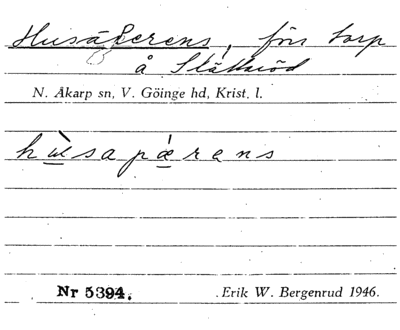 Husaperens, förr torp
å Slättaröd
N. Åkarp sn, V. Göinge hd, Krist. l.
hùsapǽrens
Nr 5394. Erik W. Bergenrud 1946.